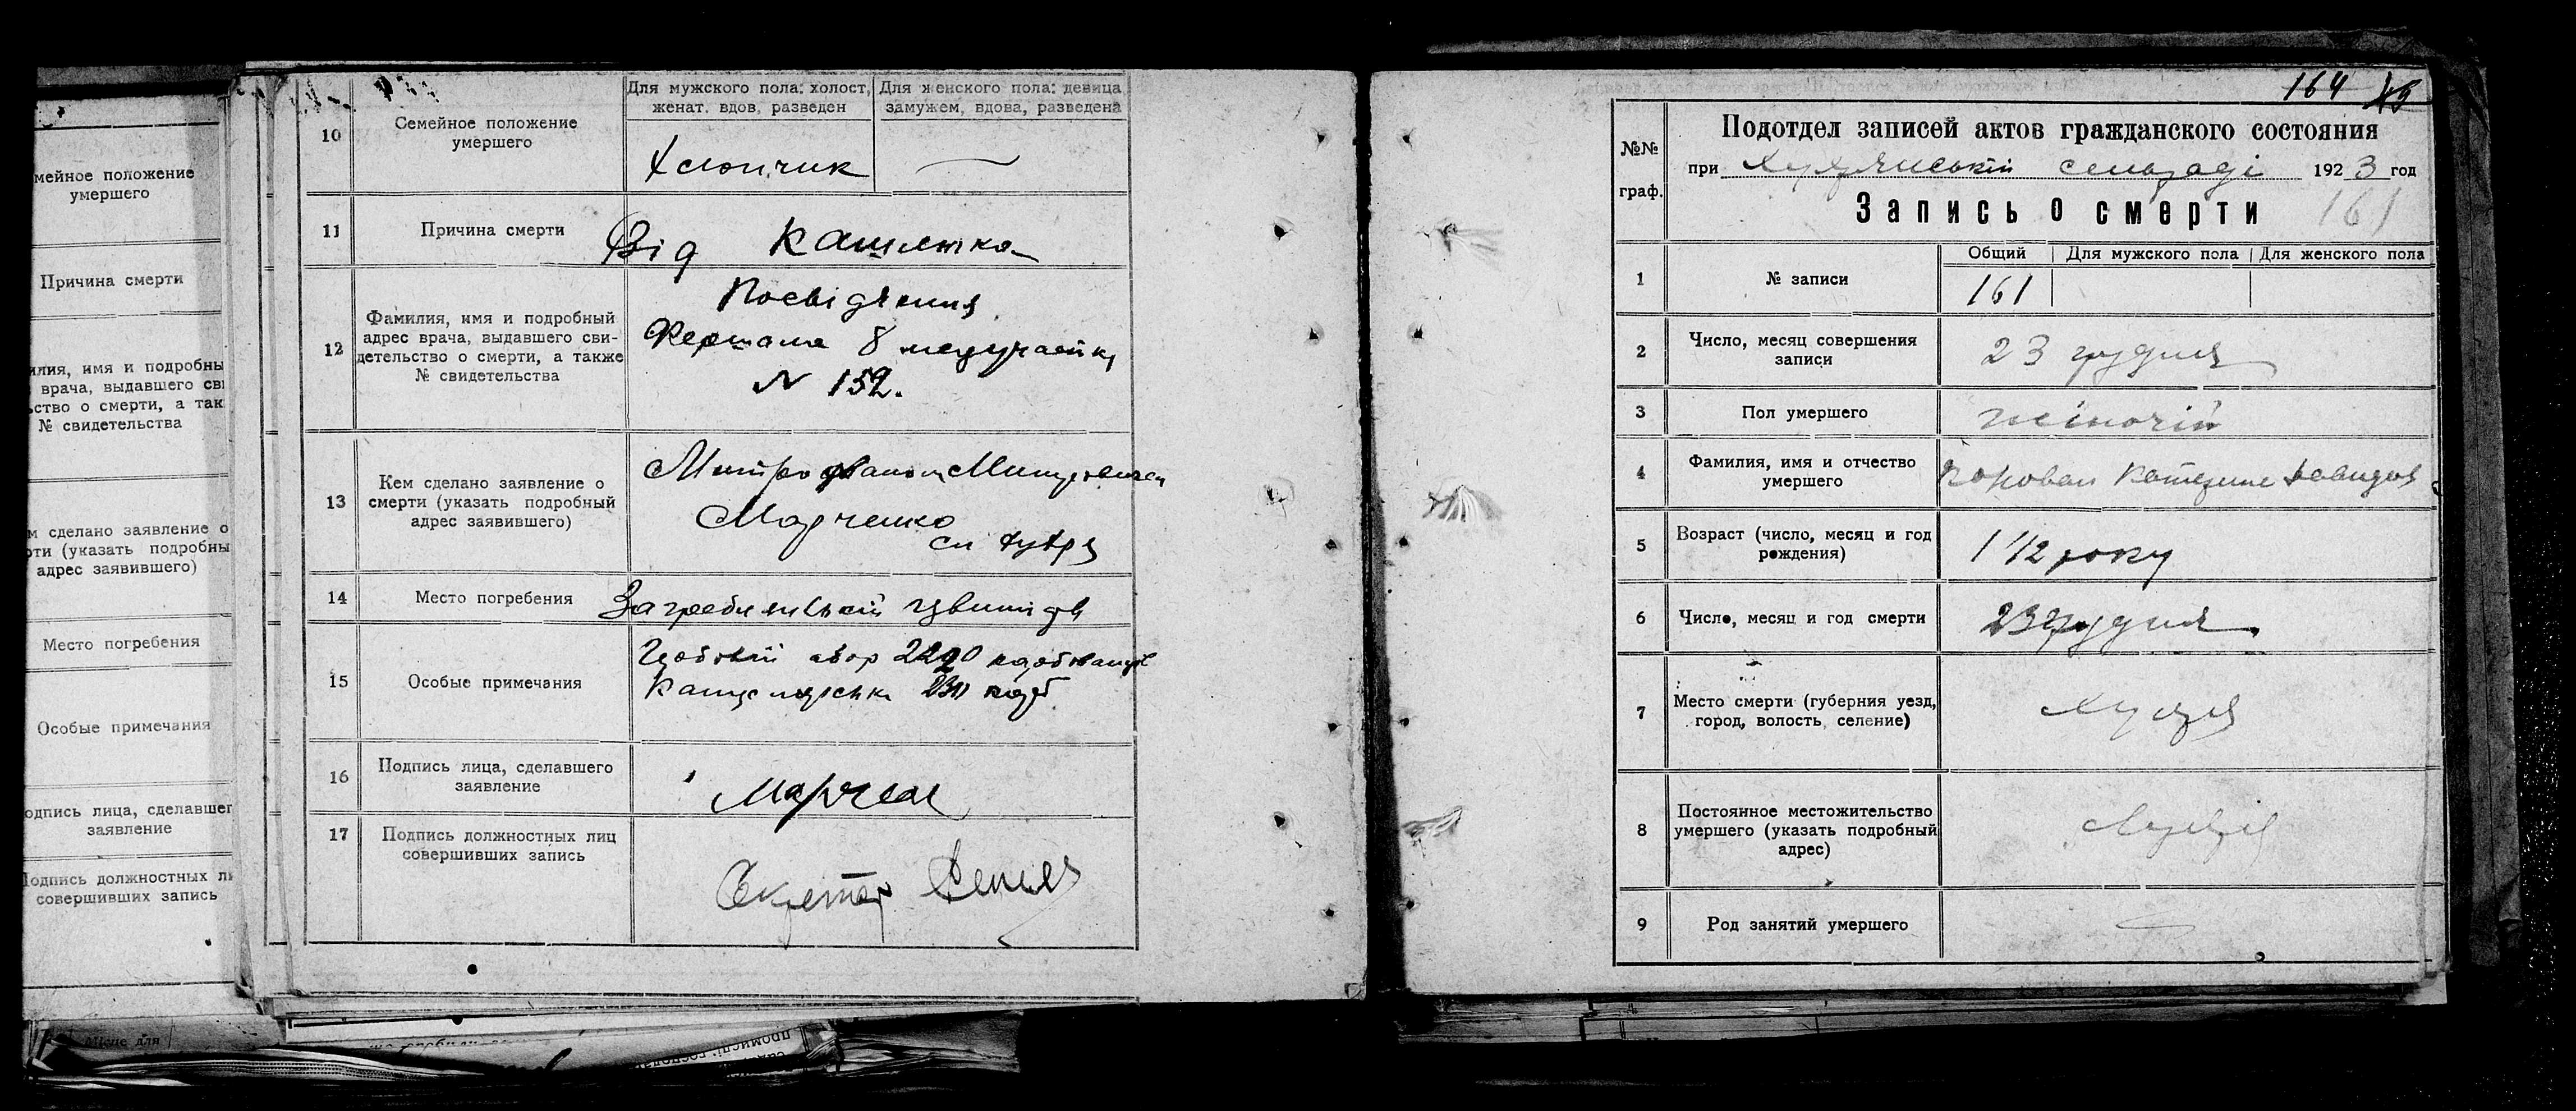 мейное положение
умершего
Причина смерти
илия, имя и подробны
врача, выдавшего сві
ьство о смерти, а так
№ свидетельства
м сделано заявление о
рти (указать подробны
адрес заявившего)
Место погребения
Особые примечания
одпись лица, сделавшег
заявление
Подпись должностных ли
совершивших запись
10
Семейное положение
умершего
Для мужского пола: холост,
женат. вдов, разведен
Для женского пола: девица
замужем, вдова, разведена
Хлопчик —
11
Причина смерти
Від Кашлюка
12
Фамилия, имя и подробный
адрес врача, выдавшего сви-
детельство о смерти, а также
№ свидетельства
8 медучастку
N 159.
13
Кем сделано заявление о
смерти (указать подробный
адрес заявившего)
Митрофаном
Марченко
сл Хухря
14
Место погребения
15
Особые примечания
16
Подпись лица, сделавшего
заявление
17
Подпись должностных лиц
совершивших запись
Секретар
164
№№
граф.
Подотдел записей актов гражданского состояния
при Хухрянській сельраді 1923 год
Запись о смерти 161
1
№ записи
Общий | Для мужского пола | Для женского пола
161
2
Число, месяц совершения
записи
23 грудня
3
Пол умершего
жіночій
4
Фамилия, имя и отчество
умершего
Катерина Давидов
5
Возраст (число, месяц и год
рождения)
1 1/2 року
6
Число, месяц и год смерти
23 грудня.
7
Место смерти (губерния уезд,
город, волость, селение)
Хухря
8
Постоянное местожительство
умершего (указать подробный
адрес)
Хухря
9
Род занятий умершего
Місце для